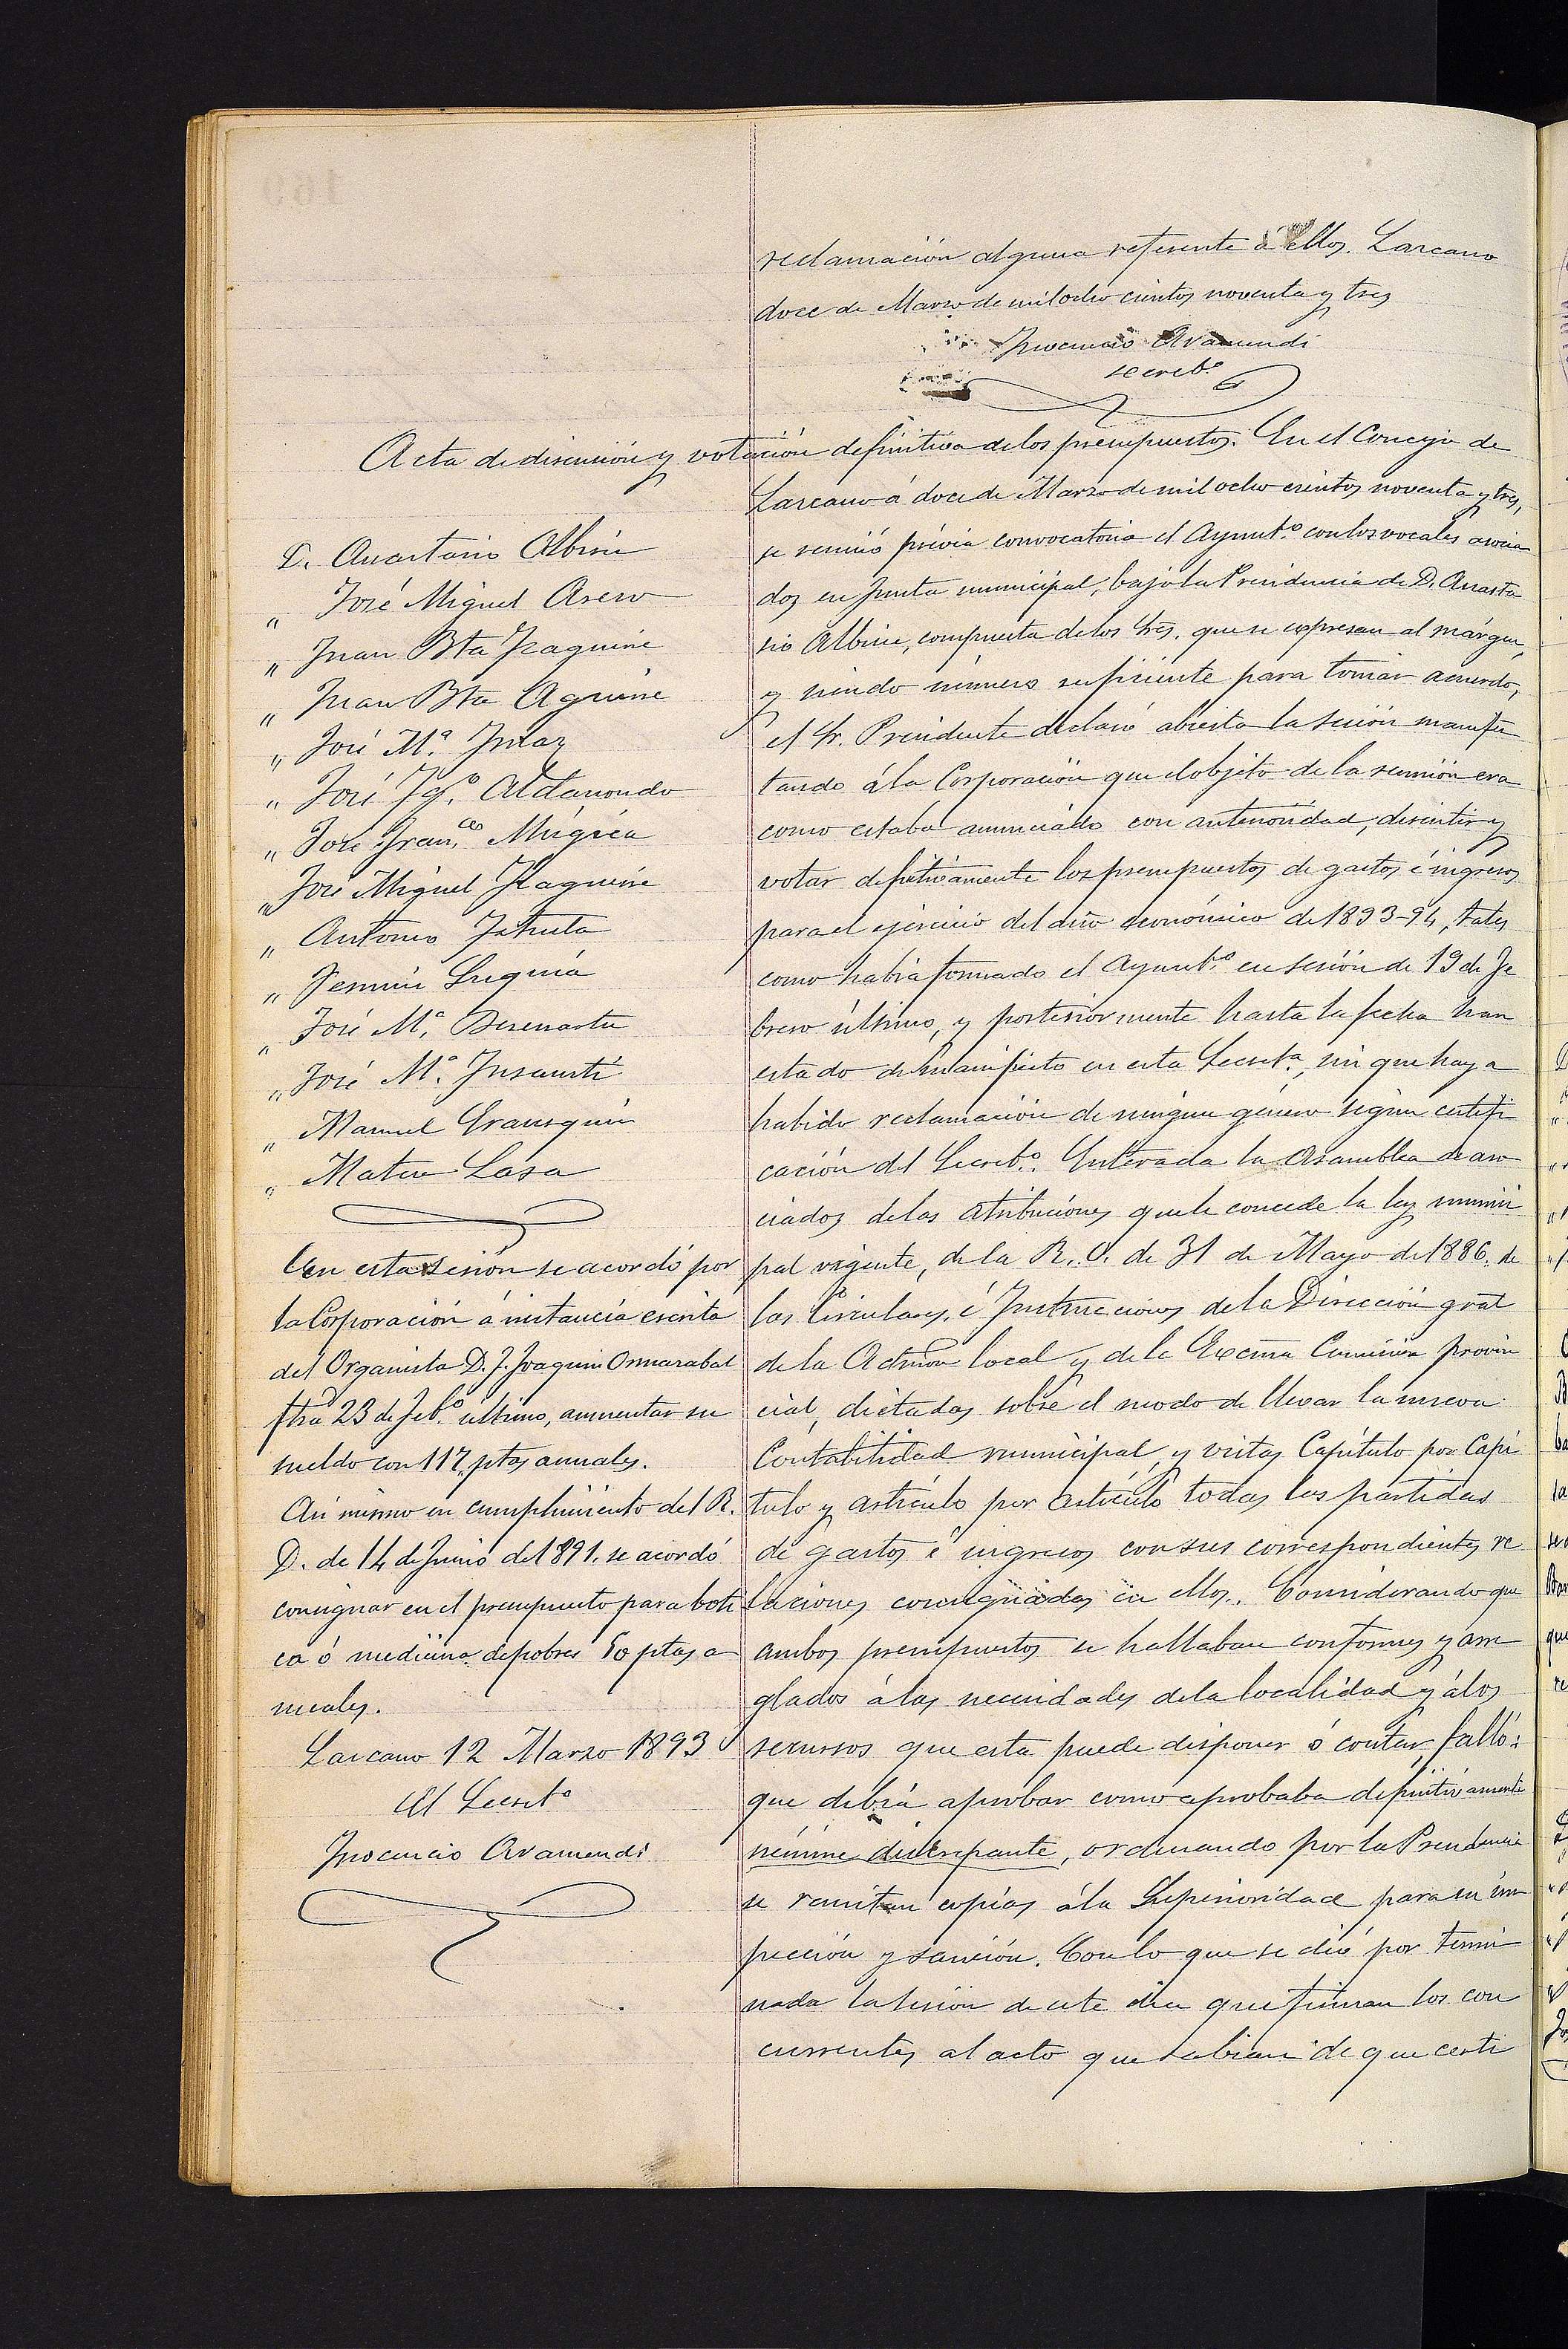 reclamación alguna referente á ellos. Lazcano
doce de Marzo de mil ocho cientos noventa y tres
Inocencio Aramendi
secretº
Acta de discusión y votación definitiva de los presupuestos. En el Concejo de
Lazcano á doce de Marzo de mil ocho cientos noventa y tres,
se reunió prévia convocatoria el Ayuntº con los vocales asocia
dos en Junta municipal, bajo la Presidencia de D. Anasta
sio Albisu, compuesta de los Sres. que se expresan al márgen,
y siendo número suficiente para tomar acuerdo,
el Sr. Presidente declaró abierta la sesión manifes
tando á la Corporación que el objeto de la reunión era
como estaba anunciado con anterioridad, discutir y
votar definitivamente los presupuestos de gastos é ingresos
para el ejercicio del año económico de 1893-94, tales
como había formado el Ayuntº en sesión de 19 de Fe
brero último, y posteriormente hasta la fecha han
estado de manifiesto en esta Secretª, sin que haya
habido reclamación de ningun género segun certifi
cación del Secretº. Enterada la Asamblea de aso
ciados de las atribuciones que le concede la ley munici
pal vigente, de la R. O. de 31 de Mayo de 1886, de
las Circulares é Instrucciones de la Dirección gral
de la Admon local y de la Excma Comisión provin
cial, dictadas sobre el modo de llevar la nueva
Contabilidad municipal, y vistas Capítulo por Capí
tulo y artículo por artículo todas las partidas
de gastos é ingresos con sus correspondientes re
laciones consignadas en ellos. Considerando que
ambos presupuestos se hallaban conformes y arre
glados á las necesidades de la localidad y á los
recursos que esta puede disponer ó contar, falló:
que debía aprobar como aprobaba definitivamente
némine discrepante, ordenando por la Presidencia
se remitan copias á la Superioridad para su ins
pección y sanción. Con lo que se dió por termi
nada la sesión de este dia que firman los con
currentes al acto que sabian de que certi
D. Anastasio Albisu
" José Miguel Aseso
" Juan Bta Izaguirre
" Juan Bta Aguirre
" José Mª Imaz
" José Igº Aldanondo
" José Francº Múgica
" José Miguel Izaguirre
" Antonio
" Fermin Luquia
" José Mª
" José Mª Insausti
" Manuel
" Mateo Lasa
En esta sesión se acordó por
la Corporación á instancia escrita
del Organista D. J. Joaquin Ormazabal
fha 23 de Febº último, aumentar su
sueldo con 117 ptas anuales.
Asi mismo en cumplimiento del R.
D. de 14 de Junio de 1891. se acordó
consignar en el presupuesto para boti
ca ó medicina de pobres 50 ptas a
nuales.
Lazcano 12 Marzo 1893
El Secretº
Inocencio Aramendi